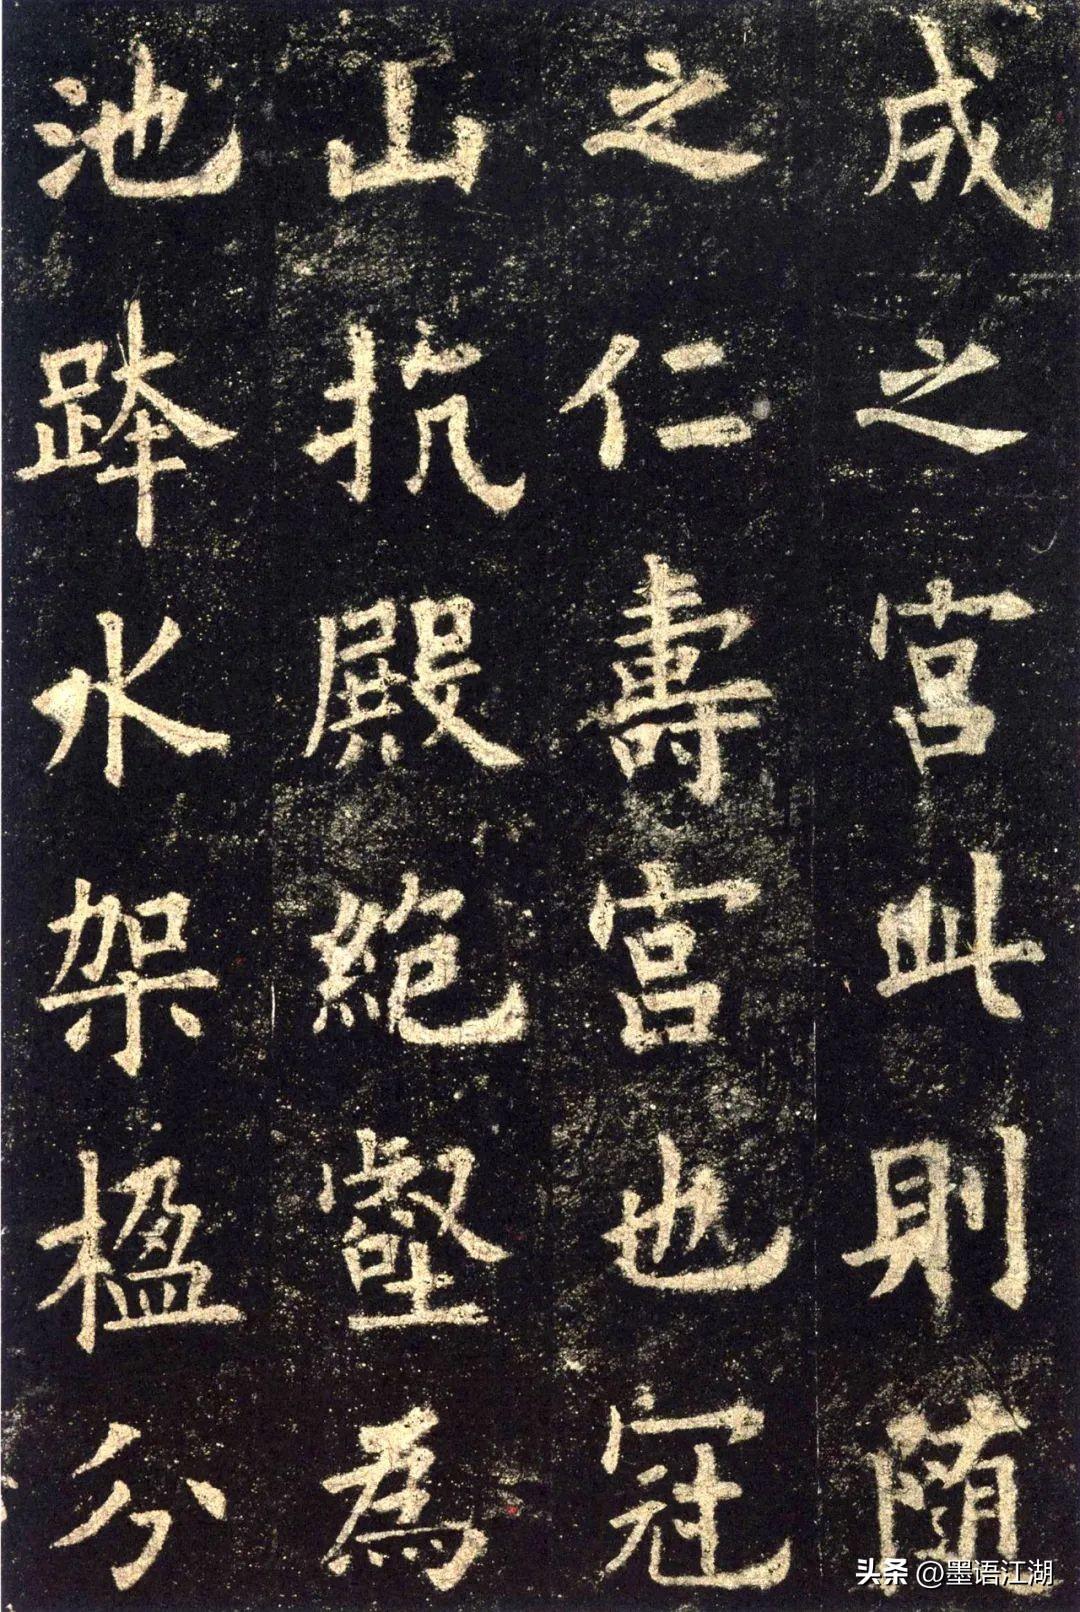 成之宮此則随
之仁壽宮也冠
山抗殿絶壑為
池跨水架楹分
头条 @墨语江湖